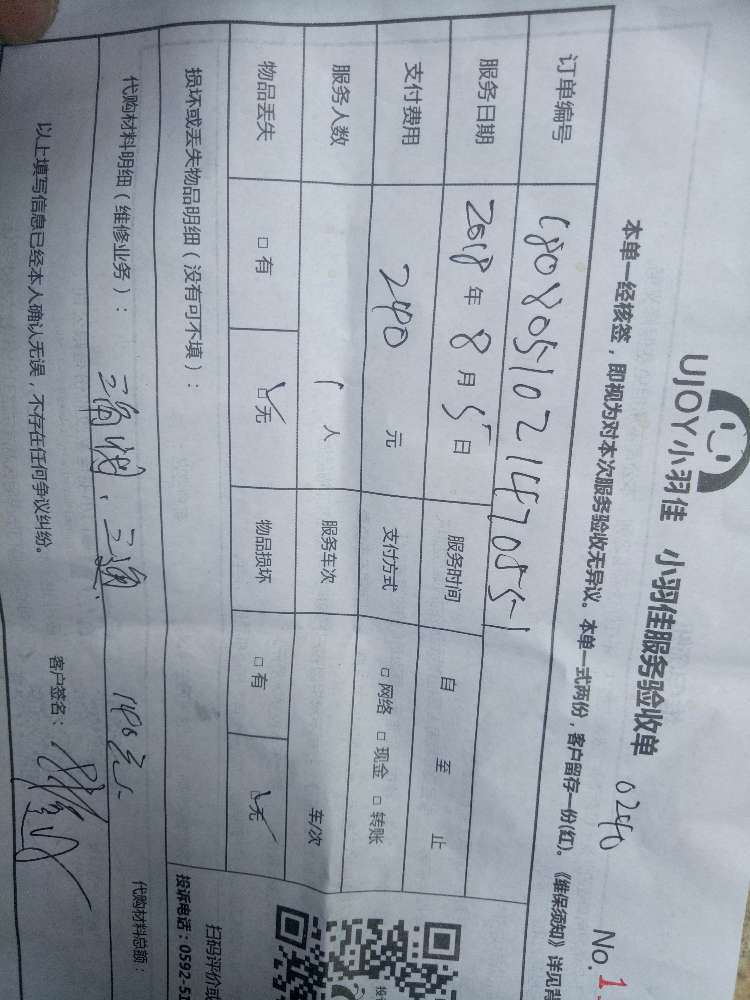 UJOY小羽佳 小羽佳服务验收单 0240
No.1
本单一经核签，即视为对本次服务验收无异议。本单一式两份，客户留存一份(红)。《维保须知》详见背
订单编号
服务日期 2018年8月5日 服务时间 自 至 止
支付费用 240 元 支付方式 □网络 □现金 □转账
服务人数 1 人 服务车次 车/次
物品丢失 □有 □无 物品损坏 □有 □无
损坏或丢失物品明细（没有可不填）：
扫码评价或
投诉电话：0592-51
代购材料明细（维修业务）： 代购材料总额：
以上填写信息已经本人确认无误，不存在任何争议纠纷。 客户签名：